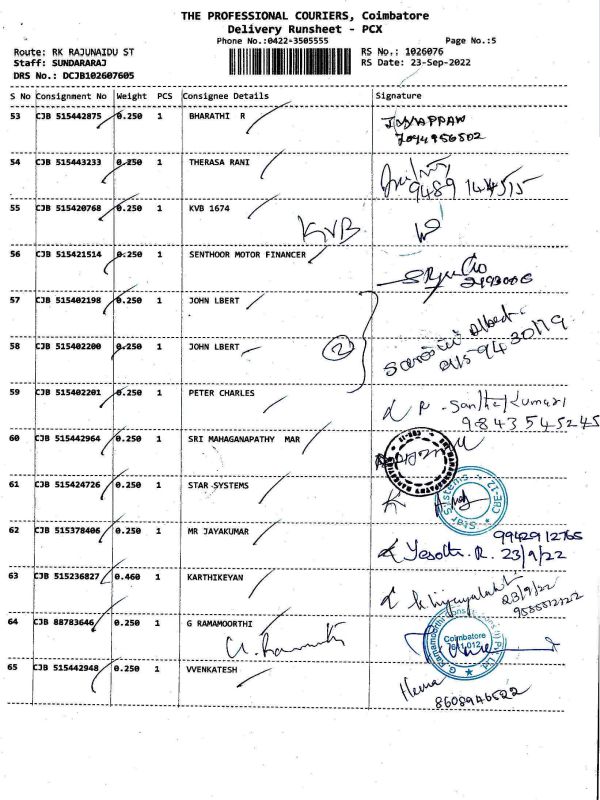 THE PROFESSIONAL COURIERS, Coimbatore
Delivery Runsheet - PCX
Phone No.:0422-3505555 Page No.:5
Route: RK RAJUNAIDU ST RS No.: 1026076
Staff: SUNDARARAJ RS Date: 23-Sep-2022
DRS No.: DCJB102607605
S No Consignment No Weight PCS Consignee Details Signature
53 CJB 515442875 0.250 1 BHARATHI R
54 CJB 515443233 0.250 1 THERASA RANI
55 CJB 515420768 0.250 1 KVB 1674
KVB
56 CJB 515421514 0.250 1 SENTHOOR MOTOR FINANCER
57 CJB 515402198 0.250 1 JOHN LBERT
58 CJB 515402200 0.250 1 JOHN LBERT 2
59 CJB 515402201 0.250 1 PETER CHARLES
9843545245
60 CJB 515442964 0.250 1 SRI MAHAGANAPATHY MAR
61 CJB 515424726 0.250 1 STAR SYSTEMS
Star Systems CBE-12
62 CJB 515378406 0.250 1 MR JAYAKUMAR
9942912765
Yesotha. R. 23/9/22
63 CJB 515236827 0.460 1 KARTHIKEYAN
23/9/22
64 CJB 88783646 0.250 1 G RAMAMOORTHI
Coimbatore
65 CJB 515442948 0.250 1 VVENKATESH
Hema
8608946522